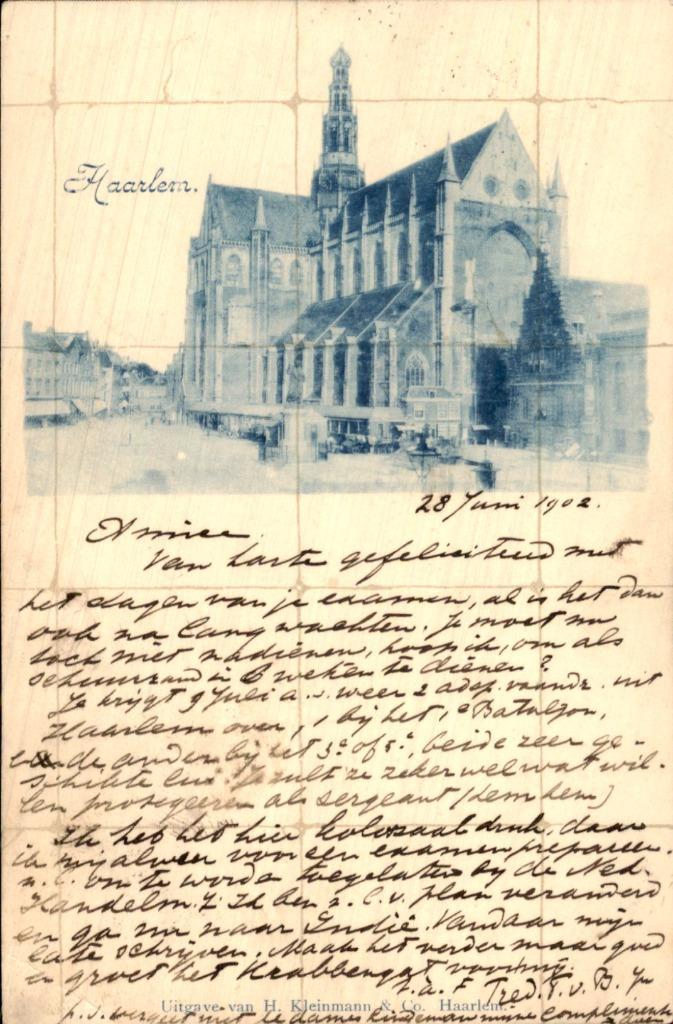 Haarlem.
28 Juni 1902.
Amice
Van harte gefeliciteerd met
het slagen van je examen, al is het dan
ook na lang wachten. Je moet nu
toch niet nadienen, hoop ik, om als
in 6 weken te dienen?
Je krijgt 9 Juli a.s. weer 2 adsp. vaandr. uit
Haarlem over, 1 bij het 1e Bataljon,
de ander bij het 3e of 5e, beide zeer ge-
schikte lui. Je zult ze zeker wel wat wil-
len protegeeren als sergeant (hem hem)
Ik heb het hier kolossaal druk, daar
ik mij alweer voor een examen prepareer.
n.l. om te worden toegelaten bij de Ned.
Handelm. Ik ben n.l. v. plan veranderd
en ga nu naar Indië. Vandaar mijn
late schrijven. Maak het verder maar goed
en groet het Krabbengat van mij
t.a.v. Fred. v. B.
p.s. vergeet niet de dames mijne complimenten
Uitgave van H. Kleinmann & Co. Haarlem.